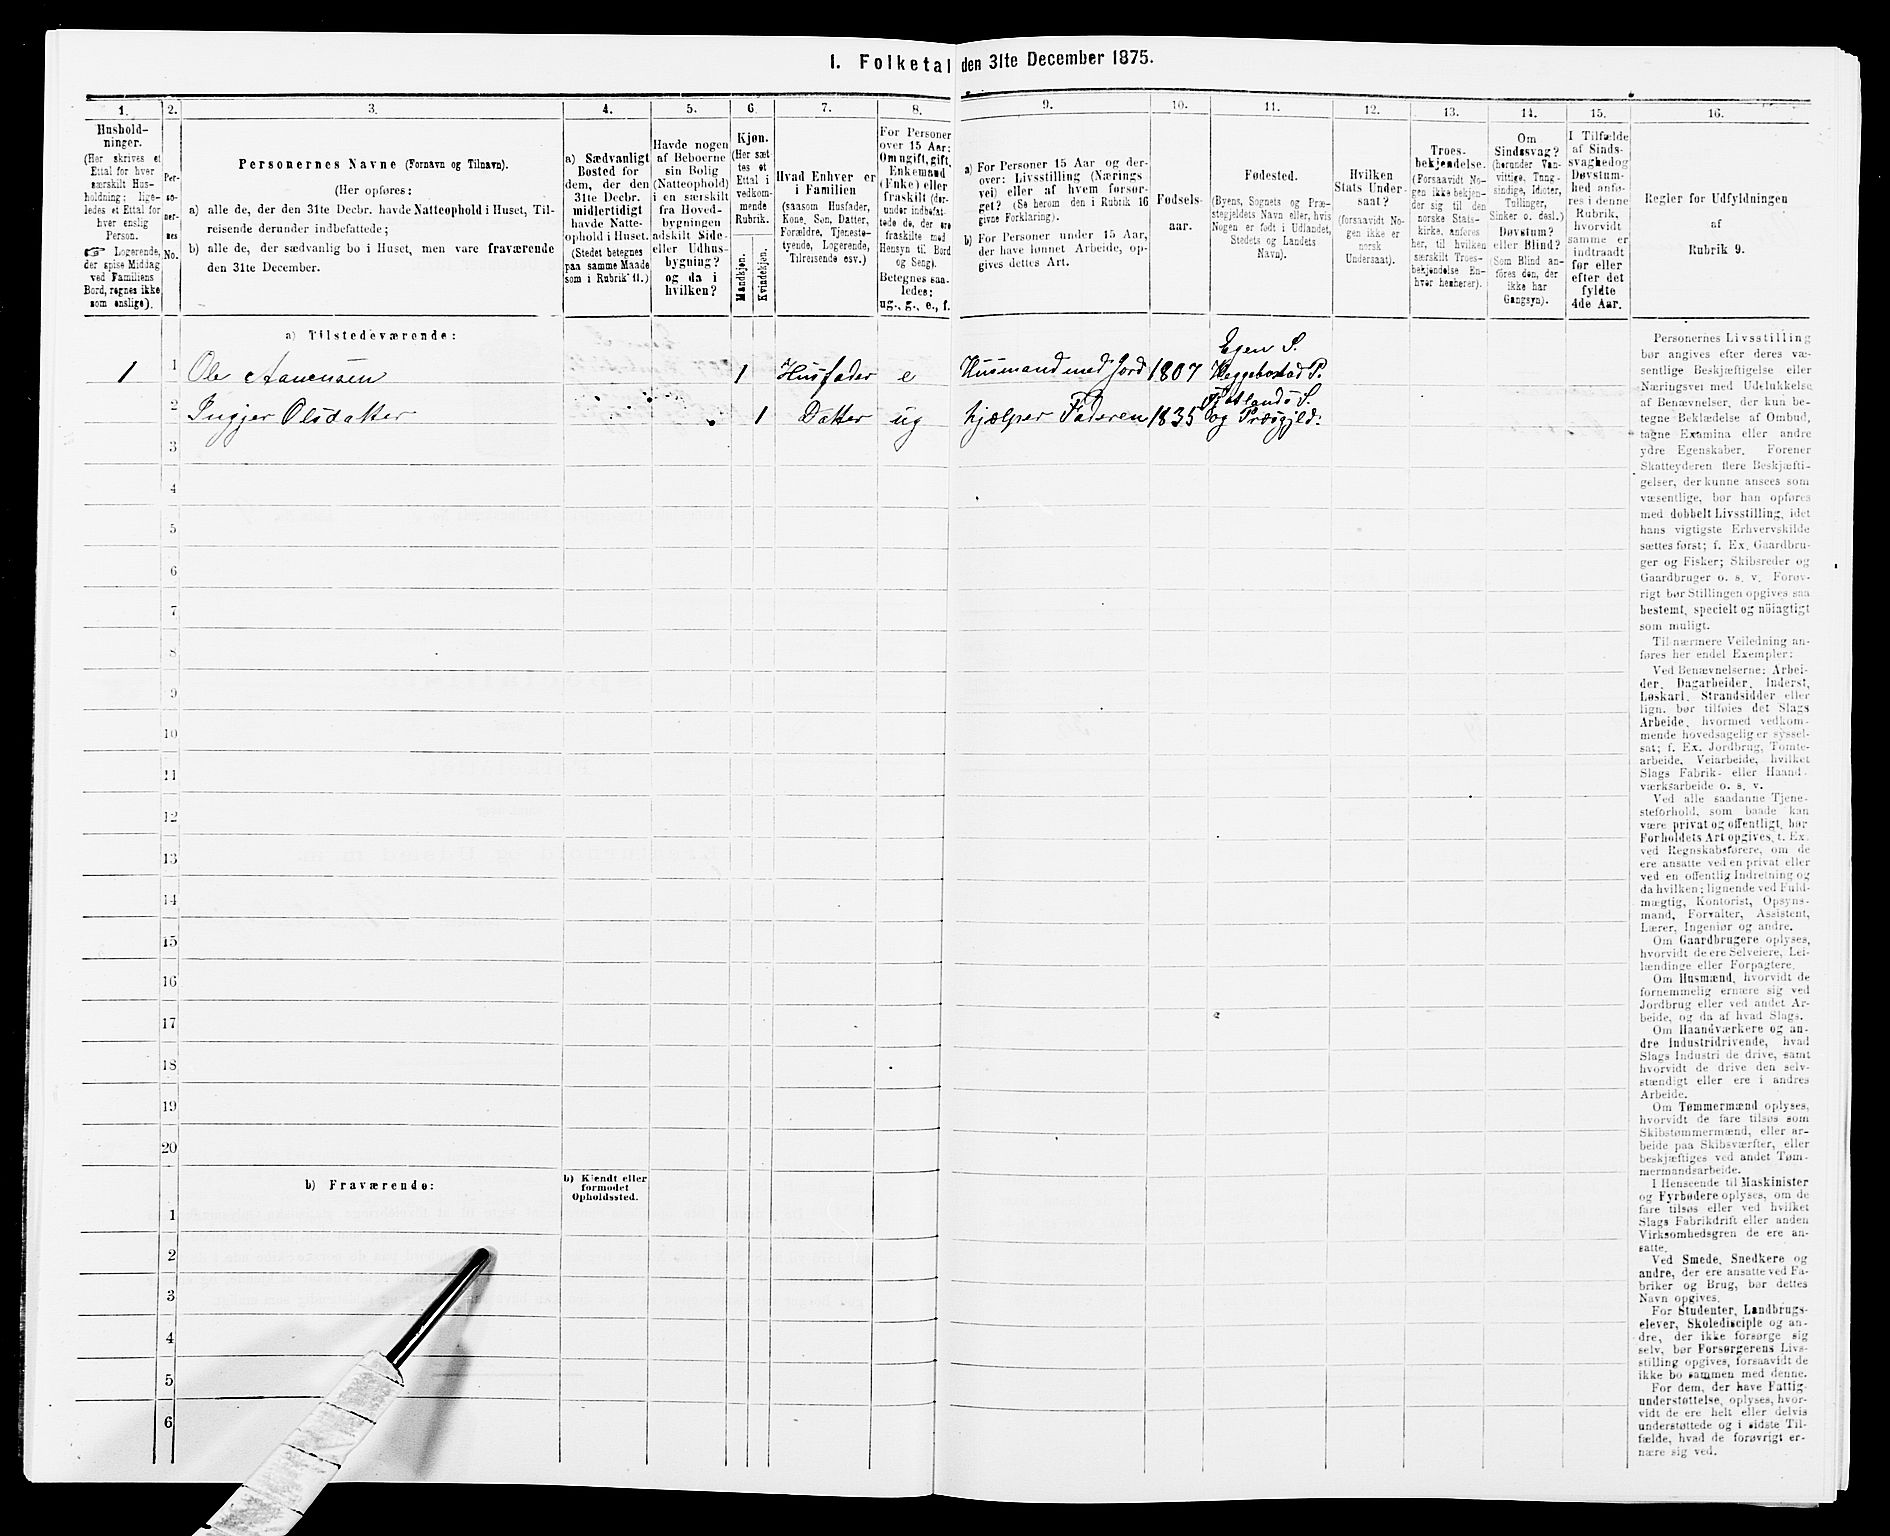 I. Folketal den 31te December 1875.
1.
2.
3.
4.
5.
6.
7.
8.
9.
10.
11.
12.
13.
14.
15.
16.
Hushold-
ninger.
(Her skrives et
Ettal for hver
særskilt Hus-
holdning; lige-
ledes et Ettal for
hver enslig
Person.
☞ Logerende,
der spise Middag
ved Familiens
Bord, regnes ikke
som enslige).
Per-
so-
ner-
nes
No.
Personernes Navne (Fornavn og Tilnavn).
(Her opføres:
a) alle de, der den 31te Decbr. havde Natteophold i Huset, Til-
reisende derunder indbefattede;
b) alle de, der sædvanlig bo i Huset, men vare fraværende
den 31te December.
a) Sædvanligt
Bosted for
dem, der den
31te Decbr.
midlertidigt
havde Natte-
ophold i Huset.
(Stedet betegnes
paa samme Maade
som i Rubrik 11.)
Havde nogen
af Beboerne
sin Bolig
(Natteophold)
i en særskilt
fra Hoved-
bygningen
adskilt Side-
eller Udhus-
bygning?
og da i
hvilken?
Kjøn.
(Her sæt-
tes et
Ettal i
vedkom-
mende
Rubrik.
Mandkjøn.
Kvindekjøn.
Hvad Enhver er
i Familien
(saasom Husfader,
Kone, Søn, Datter,
Forældre, Tjeneste-
tyende, Logerende,
Tilreisende osv.)
For Personer
over 15 Aar:
Om ugift, gift,
Enkemand
(Enke) eller
fraskilt (der-
under indbefat-
tede de, der ere
fraskilte med
Hensyn til Bord
og Seng).
Betegnes saa-
ledes:
ug., g., e., f.
a) For Personer 15 Aar og der-
over: Livsstilling (Nærings-
vei) eller af hvem forsør-
get? (Se herom den i Rubrik 16
givne Forklaring).
b) For Personer under 15 Aar,
der have lønnet Arbeide, op-
gives dettes Art.
Fødsels-
aar.
Fødested.
(Byens, Sognets og Præ-
stegjeldets Navn eller, hvis
Nogen er født i Udlandet,
Stedets og Landets
Navn).
Hvilken
Stats Under-
saat?
(forsaavidt No-
gen ikke er
norsk
Undersaat).
Troes-
bekjendelse.
(Forsaavidt No-
gen ikke bekjen-
der sig til den
norske Stats-
kirke, anføres
her, til hvilken
særskilt Troes-
bekjendelse En-
hver henhører).
Om
Sindssvag?
(herunder Van-
vittige, Tung-
sindige, Idioter,
Tullinger,
Sinker o. desl.)
Døvstum?
eller Blind?
(Som Blind an-
føres den, der
ikke har
Gangsyn).
I Tilfælde
af Sinds-
svaghed og
Døvstum-
hed anfø-
res i denne
Rubrik,
hvorvidt
samme er
indtraadt
før eller
efter det
fyldte
4de Aar.
Regler for Udfyldningen
af
Rubrik 9.
a) Tilstedeværende:
Egen S.
1 1 Ole Aanensen 1 Husfader e Husmand med Jord 1807 Heggebostad P.
Fjotlands S.
2 Ingjer Olsdatter 1 Datter ug hjælper Faderen 1835 og Præsgjeld.
3
4
5
6
7
8
9
10
11
12
13
14
15
16
17
18
19
20
b) Fraværende:
b) Kjendt eller
formodet
Opholdssted.
1
2
3
4
5
6
Personernes Livsstilling
bør angives efter deres væ-
sentlige Beskjæftigelse eller
Næringsvei med Udelukkelse
af Benævnelser, der kun be-
tegne Beklædelse af Ombud,
tagne Examina eller andre
ydre Egenskaber. Forener
Skatteyderen flere Beskjæfti-
gelser, der kunne ansees som
væsentlige, bør han opføres
med dobbelt Livsstilling, idet
hans vigtigste Erhvervskilde
sættes først; f. Ex. Gaardbru-
ger og Fisker; Skibsreder og
Gaardbruger o. s. v. Forøv-
rigt bør Stillingen opgives saa
bestemt, specielt og nöiagtigt
som muligt.
Til nærmere Veiledning an-
føres her endel Exempler:
Ved Benævnelserne: Arbei-
der, Dagarbeider, Inderst,
Løskarl, Strandsidder eller
lign. bør tilføies det Slags
Arbeide, hvormed vedkom-
mende hovedsagelig er syssel-
sat; f. Ex. Jordbrug, Tomte-
arbeide, Veiarbeide, hvilket
Slags Fabrik- eller Haand-
værksarbeide o. s. v.
Ved alle saadanne Tjene-
steforhold, som baade kan
være privat og offentligt, bør
Forholdets Art opgives, t. Ex.
ved Regnskabsførere, om de
ere ansatte ved en privat eller
ved en offentlig Indretning og
da hvilken; lignende ved Fuld-
mægtig, Kontorist, Opsyns-
mand, Forvalter, Assistent,
Lærer, Ingeniør og andre.
Om Gaardbrugere oplyses,
hvorvidt de ere Selveiere, Lei-
lændinge eller Forpagtere.
Om Husmænd, hvorvidt de
fornemmelig ernære sig ved
Jordbrug eller ved andet Ar-
beide, og da af hvad Slags.
Om Haandværkere og an-
dre Industridrivende, hvad
Slags Industri de drive, samt
hvorvidt de drive den selv-
stændigt eller ere i andres
Arbeide.
Om Tømmermænd oplyses,
hvorvidt de fare tilsøs som
Skibstømmermænd, eller ar-
beide paa Skibsværfter, eller
beskjæftiges ved andet Tøm-
mermandsarbeide.
I Henseende til Maskinister
og Fyrbødere oplyses, om de
fare tilsøs eller ved hvilket
Slags Fabrikdrift eller anden
Virksomhedsgren de ere an-
satte.
Ved Smede, Snedkere og
andre, der ere ansatte ved Fa-
briker og Brug, bør dettes
Navn opgives.
For Studenter, Landbrugs-
elever, Skoledisciple og an-
dre, der ikke forsørge sig
selv, bør Forsørgerens Livs-
stilling opgives, forsaavidt de
ikke bo sammen med denne.
For dem, der have Fattig-
understøttelse, oplyses, hvor-
vidt de ere helt eller delvis
understøttede og i sidste Til-
fælde, hvad de forøvrigt er-
nære sig ved.